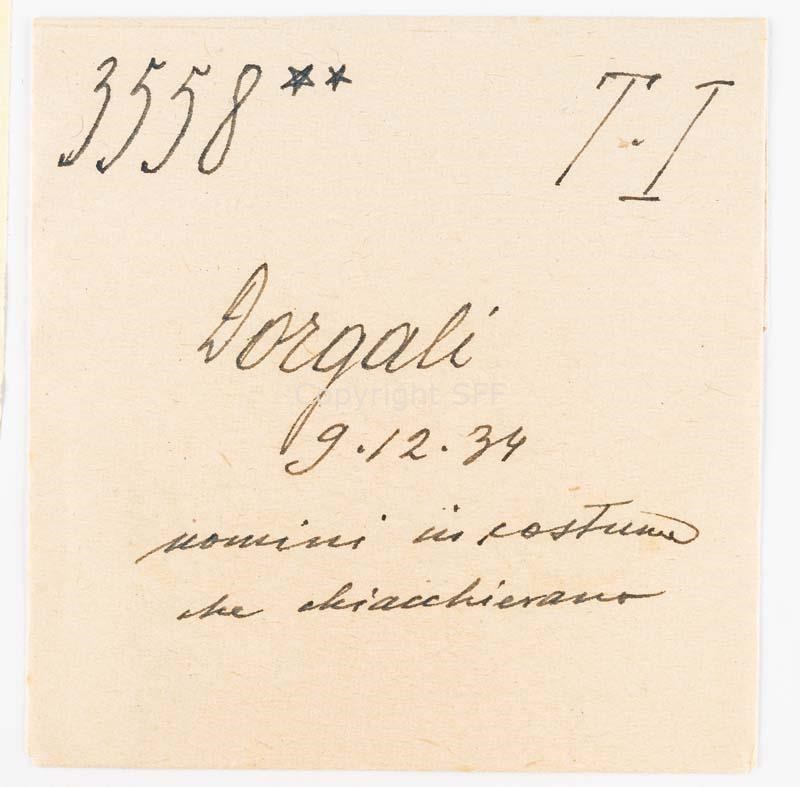 3558** T.I
Dorgali
Copyright SFF
9.12.34
uomini in costume
che chiacchierano